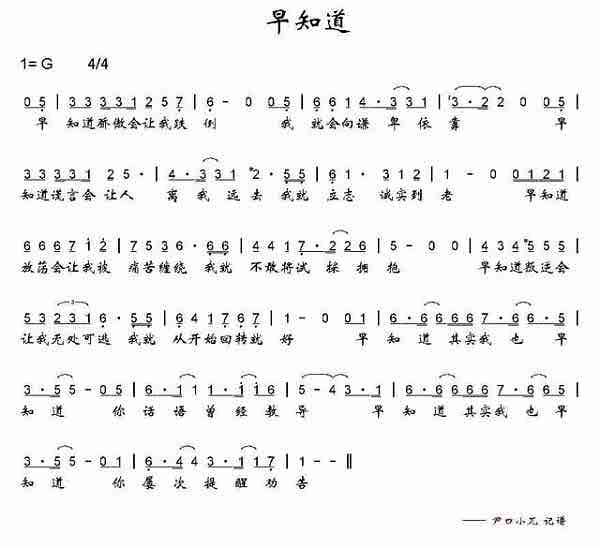 早知道
1= G 4/4
0 5 | 3 3 3 3 3 1 2 5 7 | 6 - 0 0 5 | 6 6 1 4 · 3 3 1 | 3 · 2 2 0 0 5 |
早 知道骄傲会让我跌 倒 我 就会向谦 卑依靠 早
3 3 3 3 3 1 2 5 · | 4 · 3 3 1 2 · 5 5 | 6 1 · 3 1 · 7 6 | 5 - 0 0 1 2 1 |
知道谎言会 让人 离 我 远去 我就 立志 诚实到 老 早知道
6 6 6 6 7 1 2 | 7 · 5 3 5 · 6 6 | 4 4 1 7 · 2 2 6 | 5 - 0 0 | 4 3 4 5 5 5 |
放荡会让我被 痛苦缠绕 我就 不敢将试 探 拥抱 早知道叛逆会
5 3 2 3 1 6 · 5 5 | 6 4 1 7 6 7 | 1 - 0 0 1 | 6 · 6 6 6 6 7 · 6 6 5 |
让我无处可逃 我就 从开始回转就 好 早 知 道 其实我 也 早
3 · 5 5 - 0 1 | 6 · 1 1 1 1 6 · 1 | 5 - 4 3 · 1 | 6 · 6 6 6 6 7 · 6 6 5 |
知 道 你 话语曾经教 导 早 知 道 其实我 也 早
3 · 5 5 - 0 1 | 6 · 4 4 3 · 1 1 7 | 1 - - - ‖
知 道 你 屡次 提醒 劝告
记谱